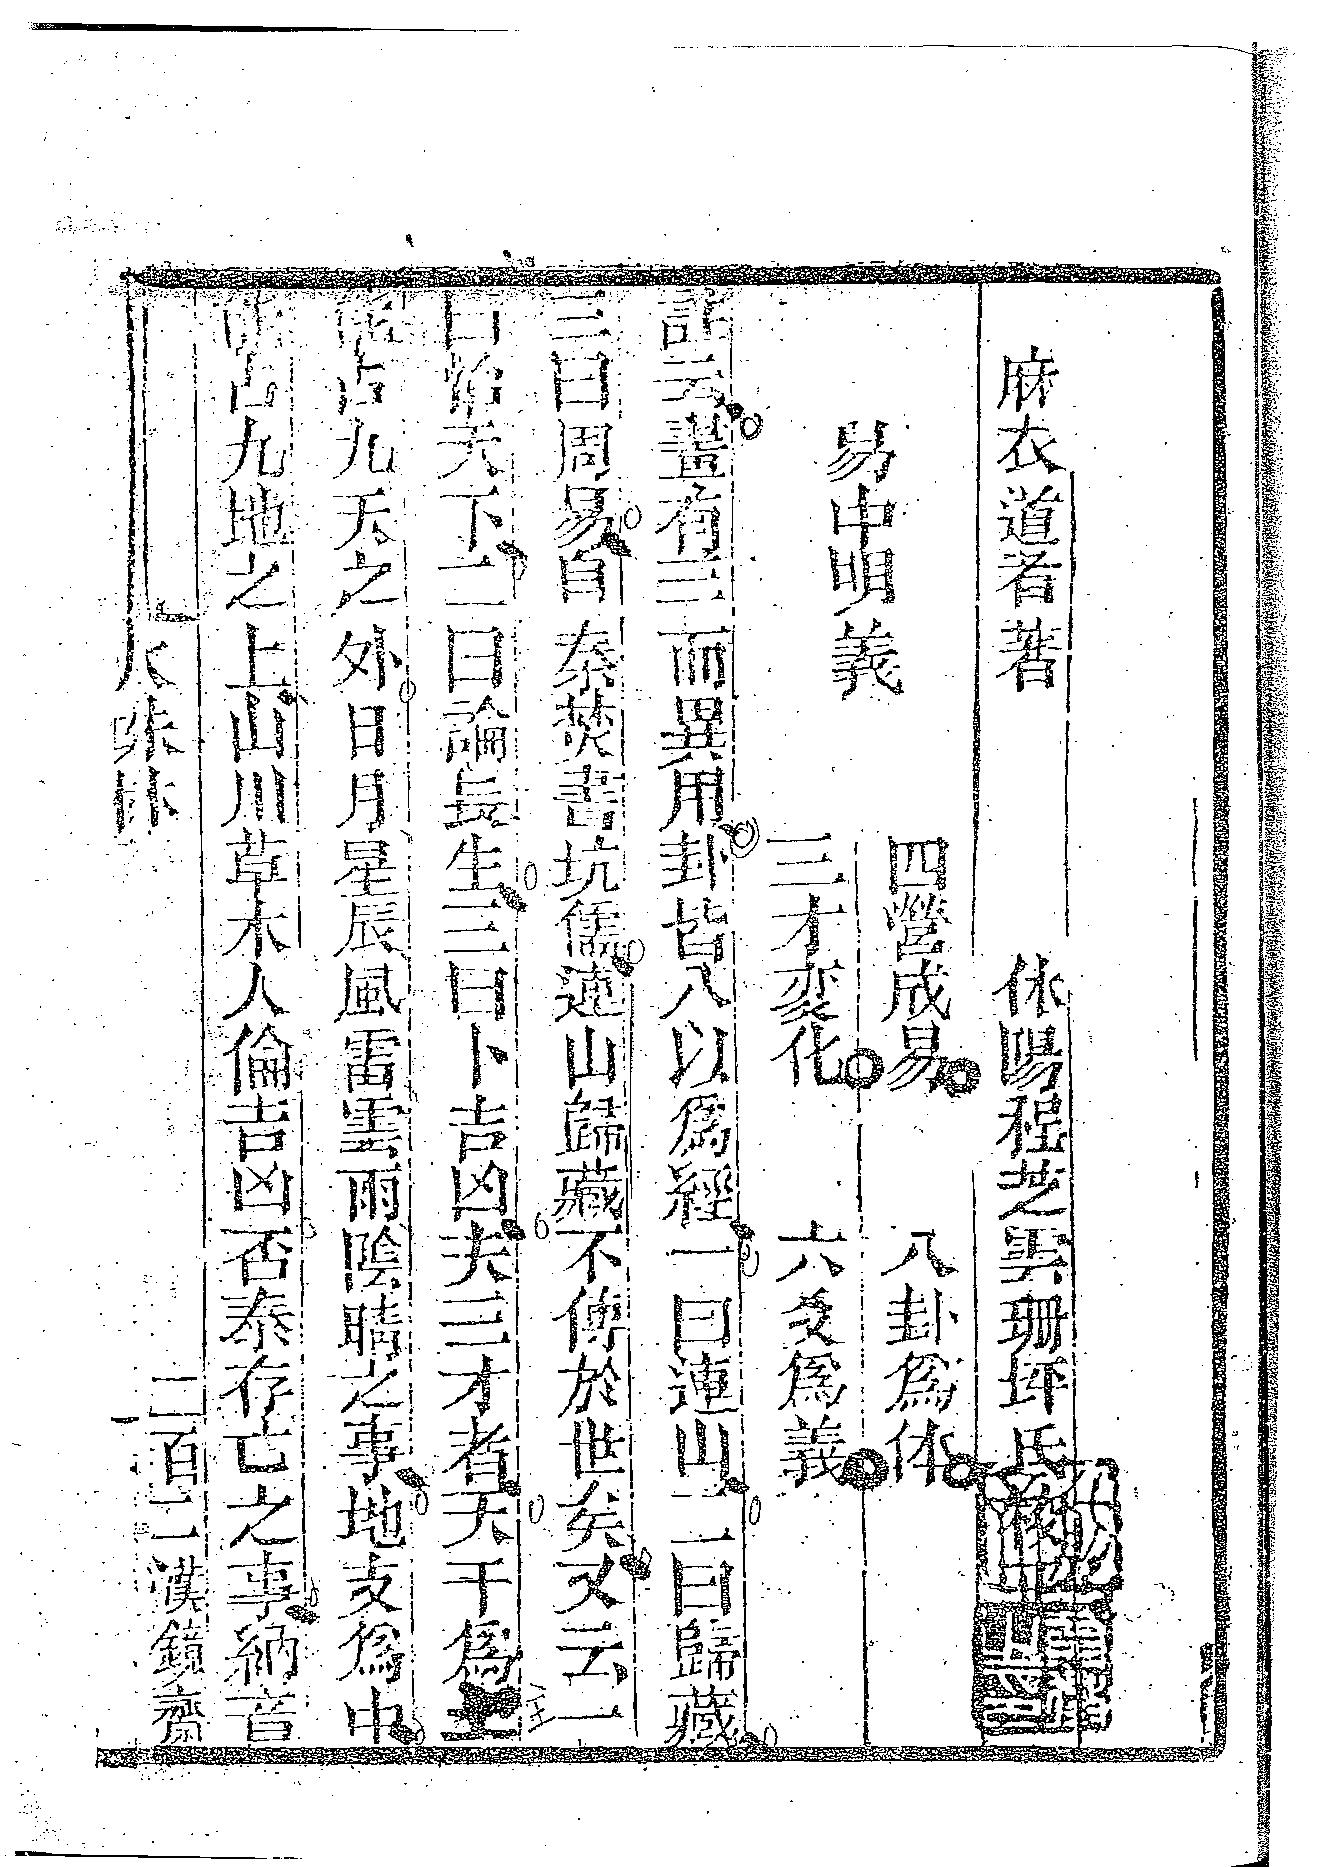 麻衣道者著　休陽程芝雲珊坪氏
易中明義
四營成易　八卦為体
三才変化　六爻為義
註云畫有三而異用卦皆八以為經一曰連山二曰歸藏
三曰周易自秦焚書坑儒連山歸藏不傳於世矣又云一
曰治天下二曰論長生三曰卜吉凶夫三才者天干為上
能占九天之外日月星辰風雷雲雨陰晴之事地支為中
占九地之上山川草木人倫吉凶否泰存亡之事納音
火珠林　二百二漢鏡齋